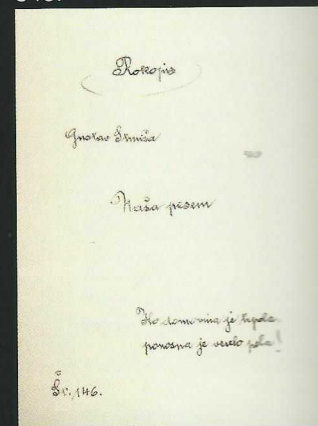 Rokopis
Gustav Strniša
Naša pesem
domovina je lepše
ponosna je veselo poje!
Šv. 146.